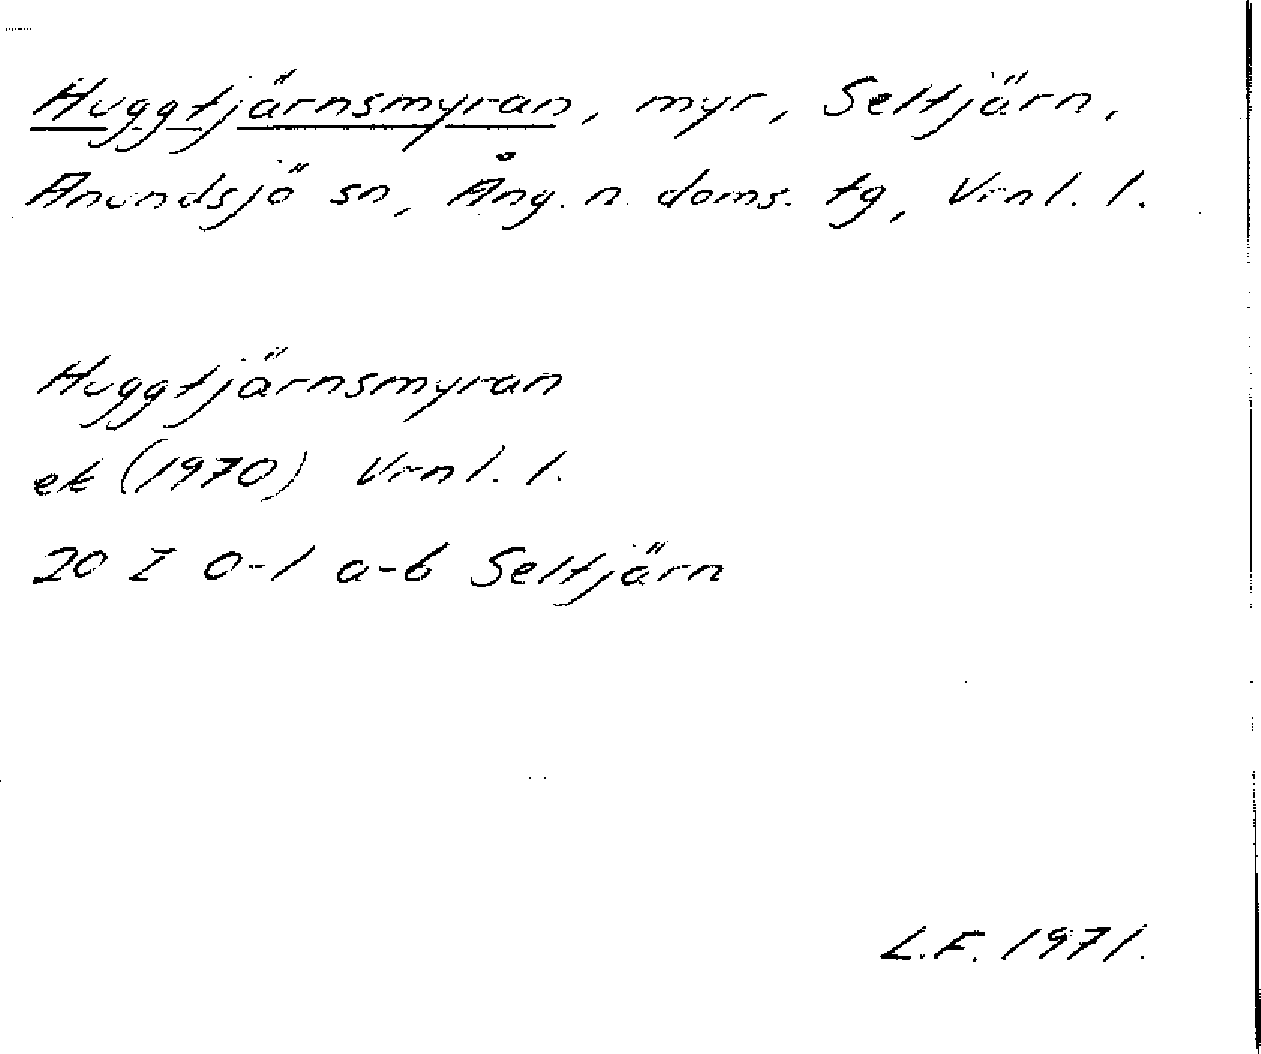 Huggtjärnsmyran, myr, Seltjärn,
Anundsjö sn, Ång. n. doms. tg, Vrnl. l.
Huggtjärnsmyran
ek (1970) Vrnl. l.
20 I 0-1 a-b Seltjärn
L.F. 1971.